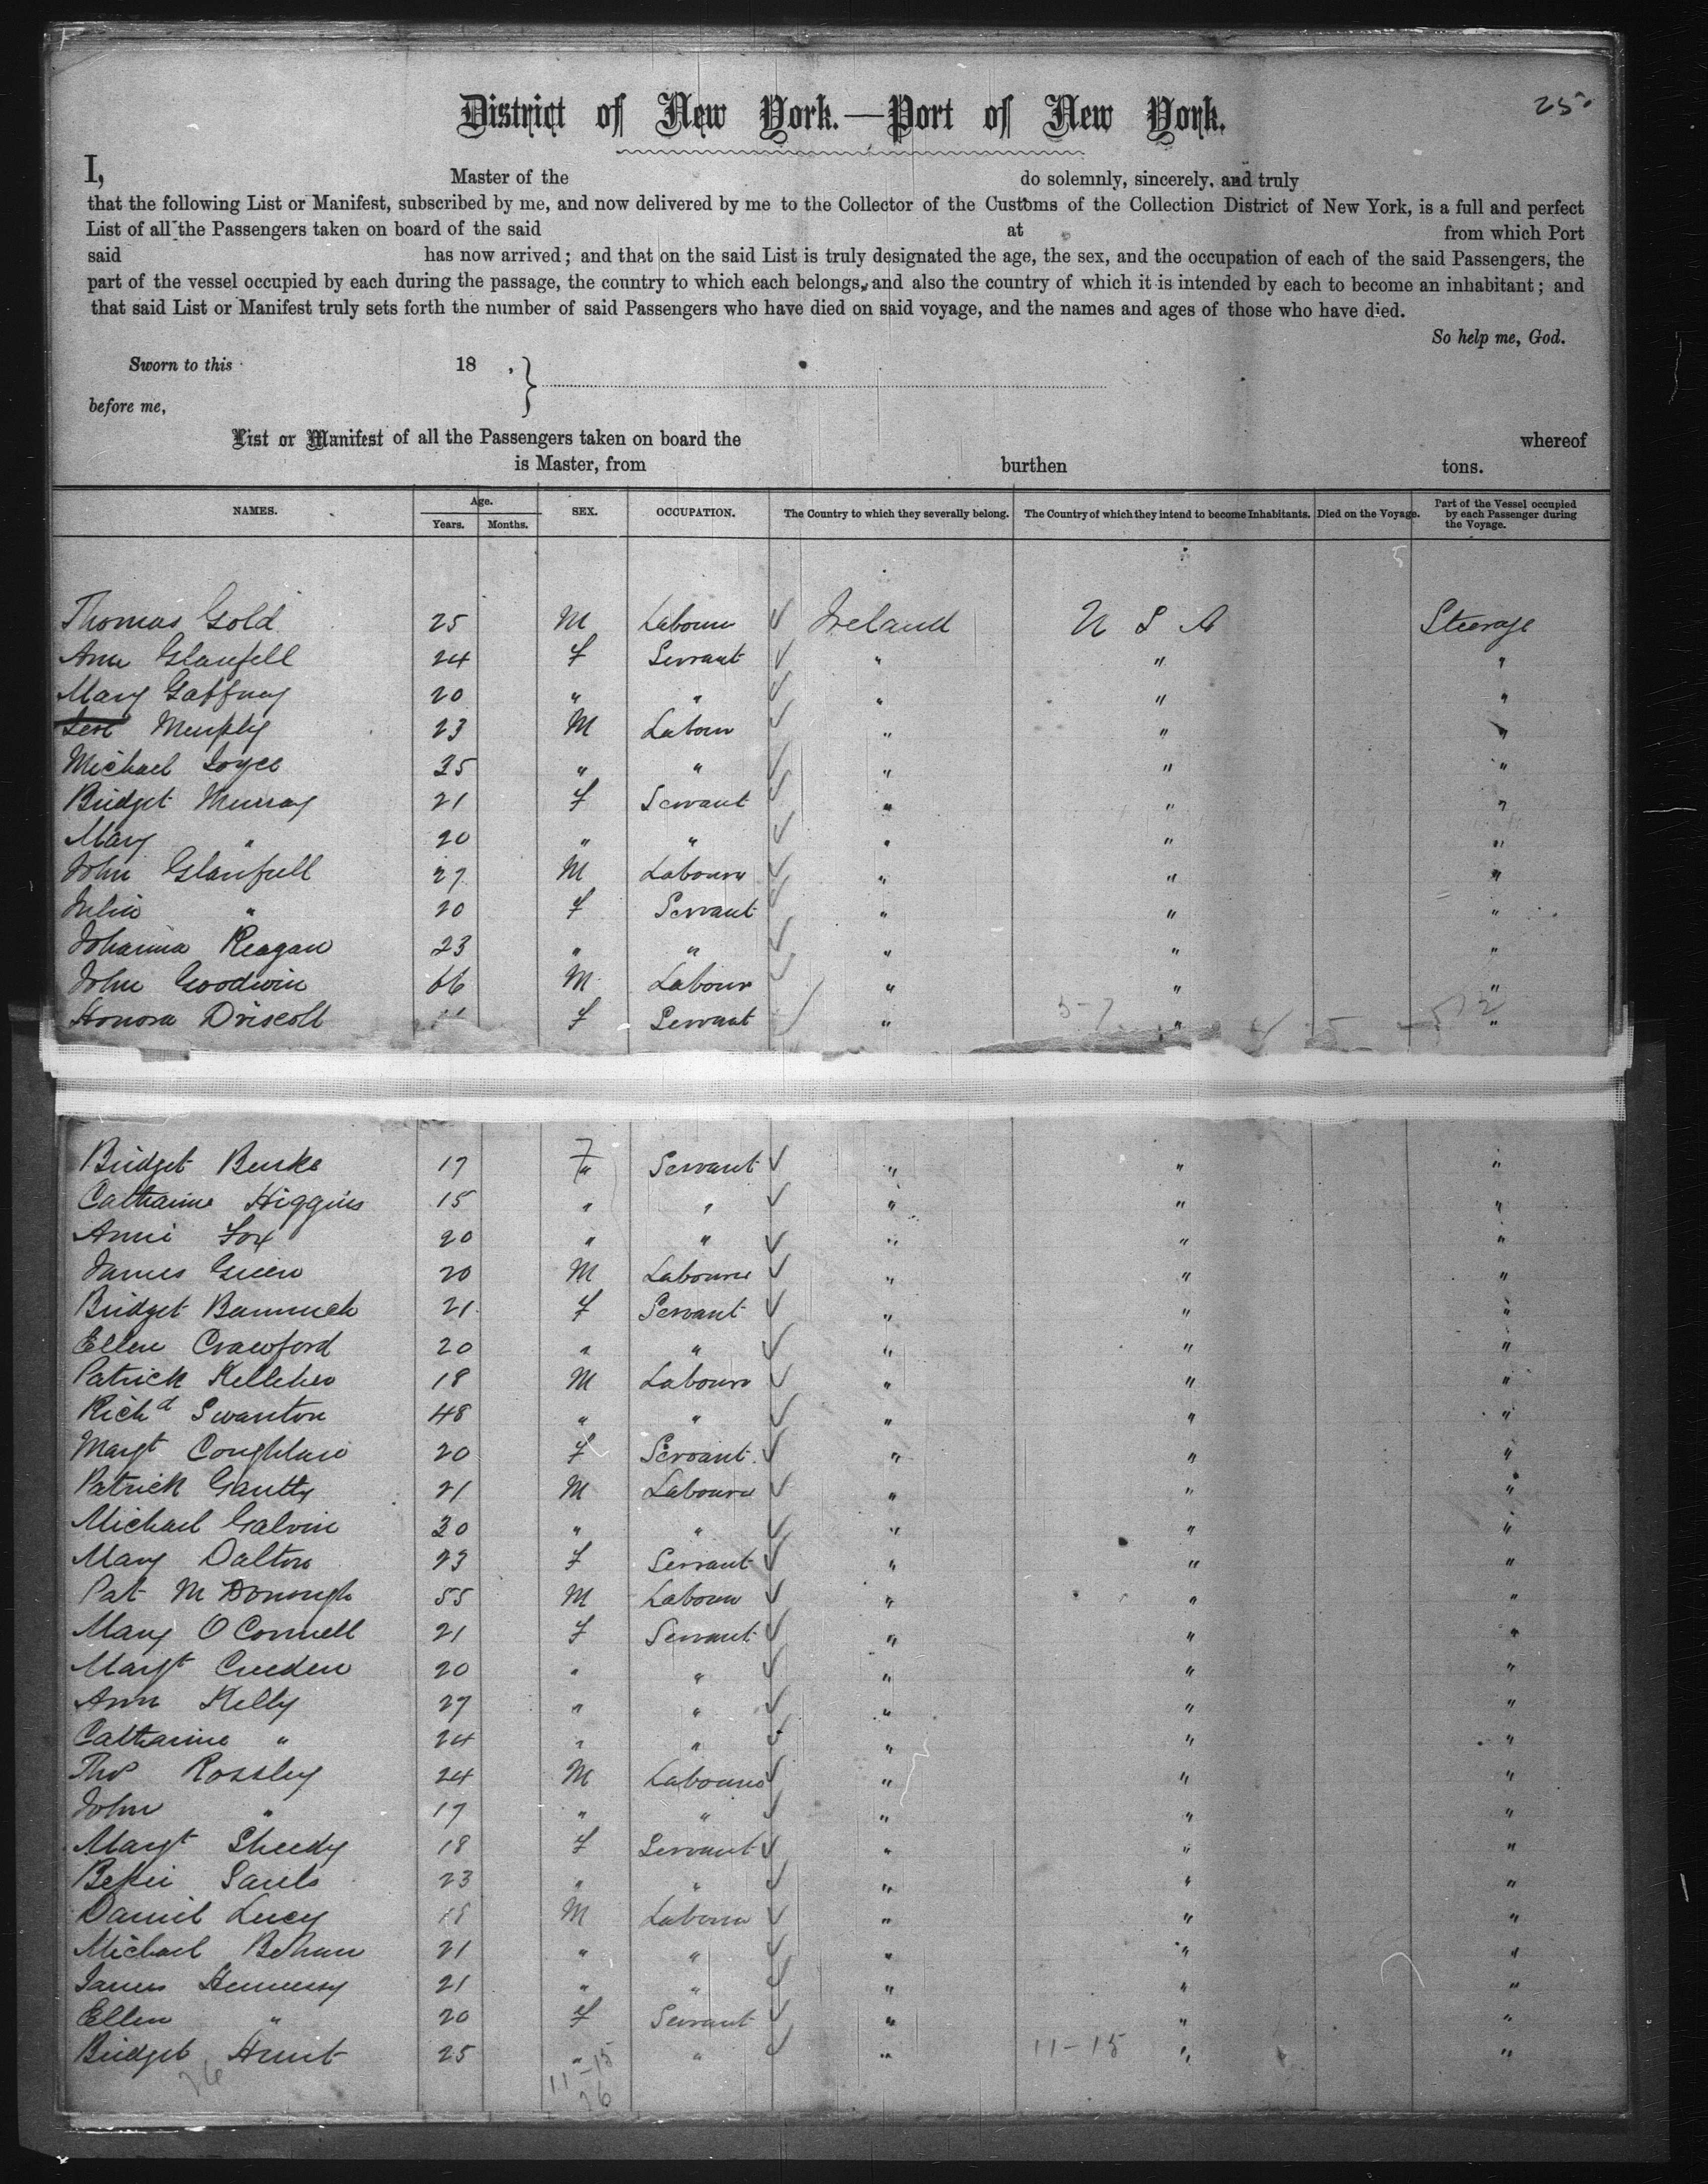 25
District of New York.—Port of New York.
I, Master of the do solemnly, sincerely, and truly
that the following List or Manifest, subscribed by me, and now delivered by me to the Collector of the Customs of the Collection District of New York, is a full and perfect
List of all the Passengers taken on board of the said at from which Port
said has now arrived; and that on the said List is truly designated the age, the sex, and the occupation of each of the said Passengers, the
part of the vessel occupied by each during the passage, the country to which each belongs, and also the country of which it is intended by each to become an inhabitant; and
that said List or Manifest truly sets forth the number of said Passengers who have died on said voyage, and the names and ages of those who have died.
So help me, God.
Sworn to this 18 ,
before me,
List or Manifest of all the Passengers taken on board the whereof
is Master, from burthen tons.
NAMES. Age. Years. Months. SEX. OCCUPATION. The Country to which they severally belong. The Country of which they intend to become Inhabitants. Died on the Voyage. Part of the Vessel occupied by each Passenger during the Voyage.
Thomas Gold 25 M Labourer Ireland U S A Steerage
Ann Glanfell 24 F Servant " " "
Mary Gaffney 20 " " " " "
Murphy 23 M Labour " " "
Michael Joyce 35 " " " " "
Bridget Murray 21 F Servant " " "
Mary " 20 " " " " "
John Glanfell 27 M Labourer " " "
Julia " 20 F Servant " " "
Johanna Reagan 23 " " " " "
John Goodwin 66 M Labour " " "
Honora Driscoll F Servant " " "
Bridget Burke 17 F Servant " " "
Catharine Higgins 15 " " " " "
Annie Fox 20 " " " " "
James Green 20 M Labourer " " "
Bridget 21 F Servant " " "
Ellen Crawford 20 " " " " "
Patrick Kelleher 18 M Labourer " " "
Richd Swanton 48 " " " " "
Margt Coughlan 20 F Servant " " "
Patrick 21 M Labourer " " "
Michael Galvin 30 " " " " "
Mary Dalton 23 F Servant " " "
Pat McDonough 55 M Labour " " "
Mary O Connell 21 F Servant " " "
Margt Creeden 20 " " " " "
Ann Kelly 27 " " " " "
Catharine " 24 " " " " "
Thos Rossley 24 M Labourer " " "
John " 17 " " " " "
Margt Sheedy 18 F Servant " " "
23 " " " " "
Daniel Lucey 18 M Labourer " " "
Michael Behan 21 " " " " "
James Hennessy 21 " " " " "
Ellen " 20 F Servant " " "
Bridget Hunt 25 " " " 11-15 " "
26 11-15
26